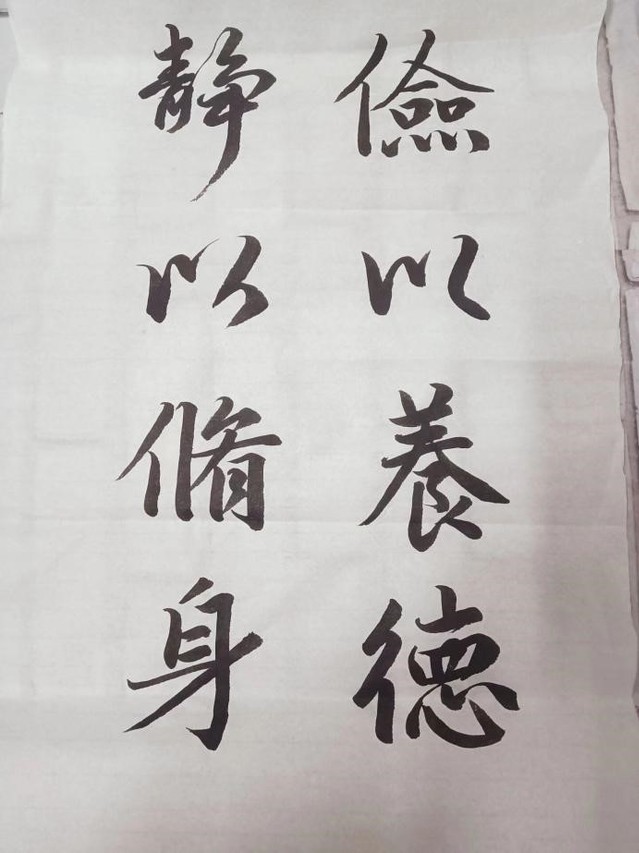 儉以養德
靜以脩身